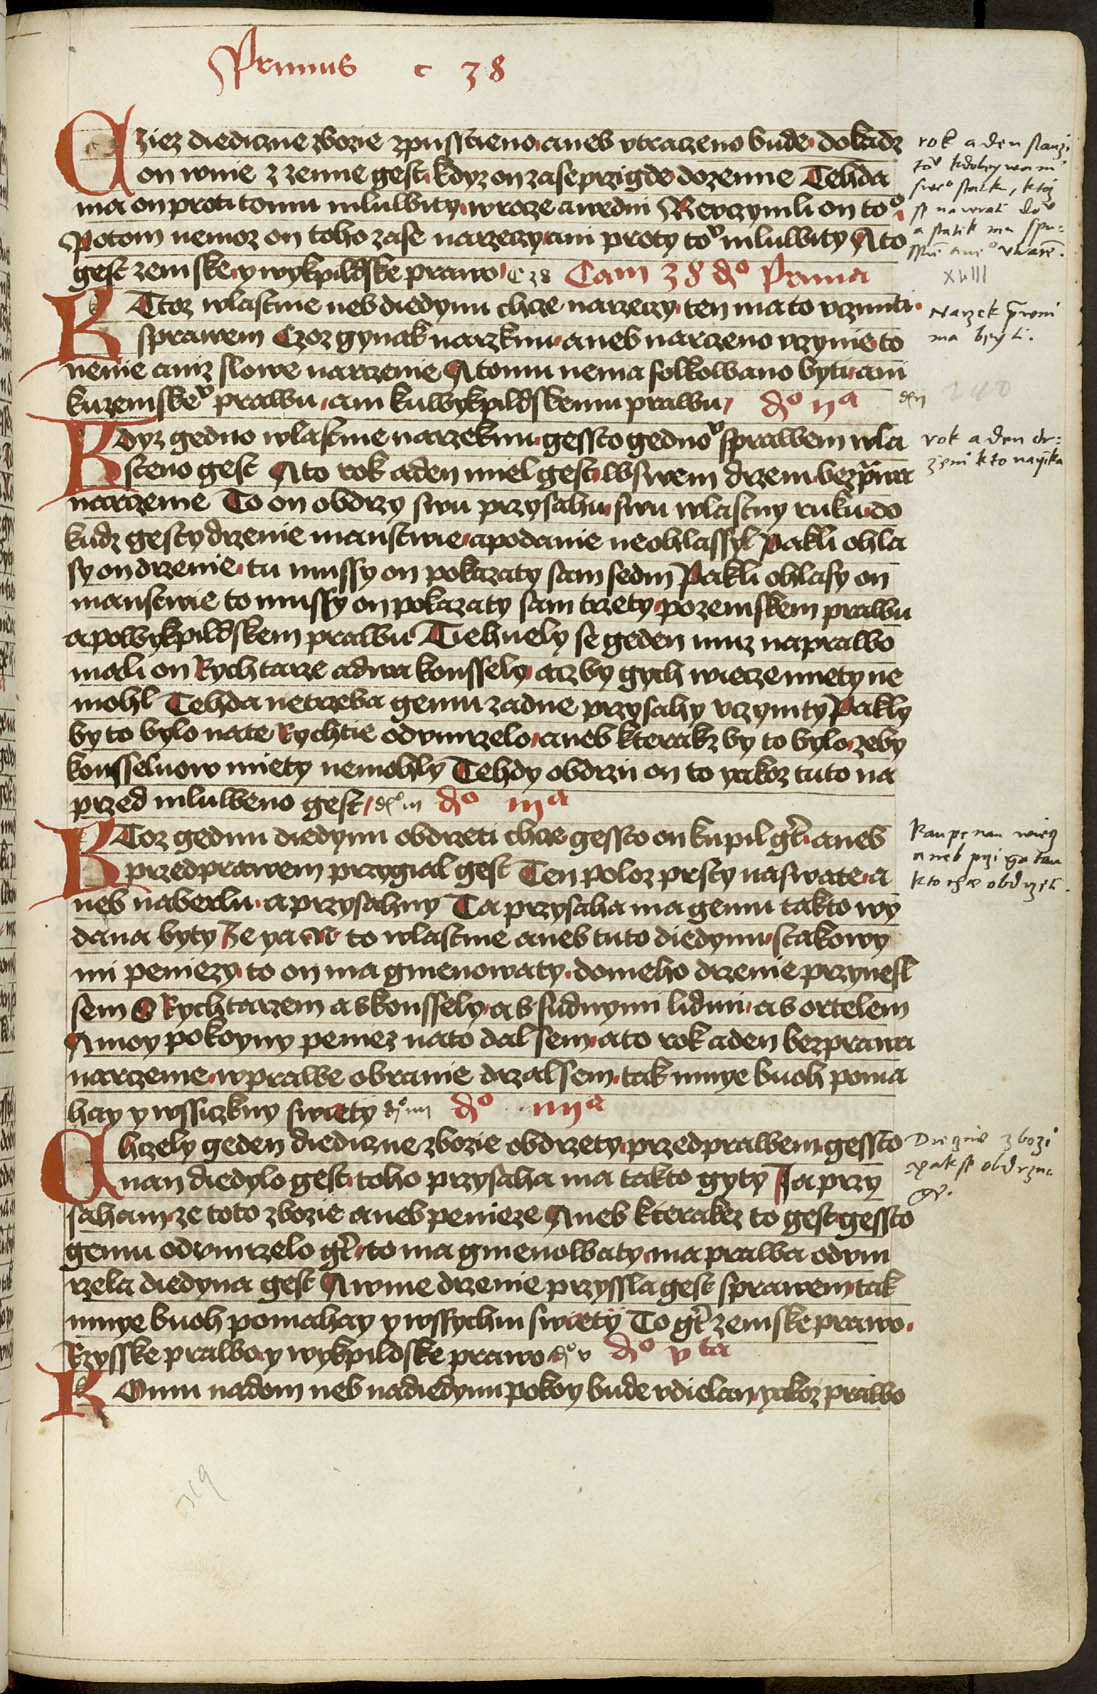 Primus c 38
Cziez diediczne zbozie zpusstieno aneb vtraczeno bude dokadz
on wnie z zemie gest kdyz on zase przigde dozemie Tehda
ma on proti tomu mluwity wrocze awedni Nevczynili on toº
Potom nemoz on toho zase narzeczy ani proty toº mluwity Ato
gest zemske y wykpildske prawo c 38 Cam 38 dº Prima
KTtoz wlastnie neb diedynu chcze narzeczy ten mato vcziniti
sprawem Czoz gynak narzknu aneb narczeno vczynie to
nenie aniz slowe narczenie Atomu nema folkowano byti ani
kuzemskeº prawu ani kuwykpildskemu prawu dº ijª
Kdyz gedno wlastnie narzeknu gessto gednoº sprawem wla
stieno gest Ato rok aden miel gest wswem drzeni bezprawa
narczenie To on obdrzy swu przysahu swu wlastny ruku do
kudz gesty drzenie manstwie apodanie neohlassyl Pakli ohla
sy on drzenie tu mussy on pokazaty sam sedm Pakli ohlasy on
manstwie to mussy on pokazaty sam trzety pozemskem prawu
apowykpildskem prawu Tiehnely se geden muz naprawo
mali on Rychtarze adwa konssely acz by gych wiecze miety ne
mohl Tehda netrzeba gemu zadne przysahy vczynity Pakly
by to bylo nate Rychtie odvmrzelo aneb kterakz by to bylo zeby
konsseluow miety nemohly Tehdy obdrzij on to yakoz tuto na
przed mluweno gest dº iij dº iijª
KToz gednu diedynu obdrzeti chcze gessto on kupil gt aneb
przedprawem przygial gest Ten poloz prsty naswate a
neb naberlu a przysahny Ta przysaha ma gemu takto wy
dana byty Ze ya to wlastnie aneb tuto diedynu stakowy
mi peniezy to on ma gmenowaty domeho drzenie przynesl
sem S Rychtarzem askonssely a s sudnymi lidmi a s ortelem
Amoy pokoyny peniez nato dal sem ato rok aden bezprawa
narczenie wprawe obranie drzal sem tak mnye buoh poma
hay y wssiczkny swiety dº iiij dº iiijª
Chczely geden diediczne zbozie obdrzety przedprawem gessto
nan diedylo gest toho przysaha ma takto gyty Ja przy
saham ze toto zbozie aneb penieze Aneb kterakez to gest gessto
gemu odvmrzelo gt to ma gmenowaty ma prawa odvm
rzela diedyna gest Awme drzenie przyssla gest sprawem tak
mnye buoh pomahay y wssychni swiety To gt zemske prawo
Rzysske prawo y wykpildske prawo dº v dº vta
KOmu nadom neb nadiedynu pokoy bude vdielan yakoz prawo
rok a den
Narzek
ma byti.
rok a den dr:
zeni kto
aneb
kto chce obdrzeti.
zbozi